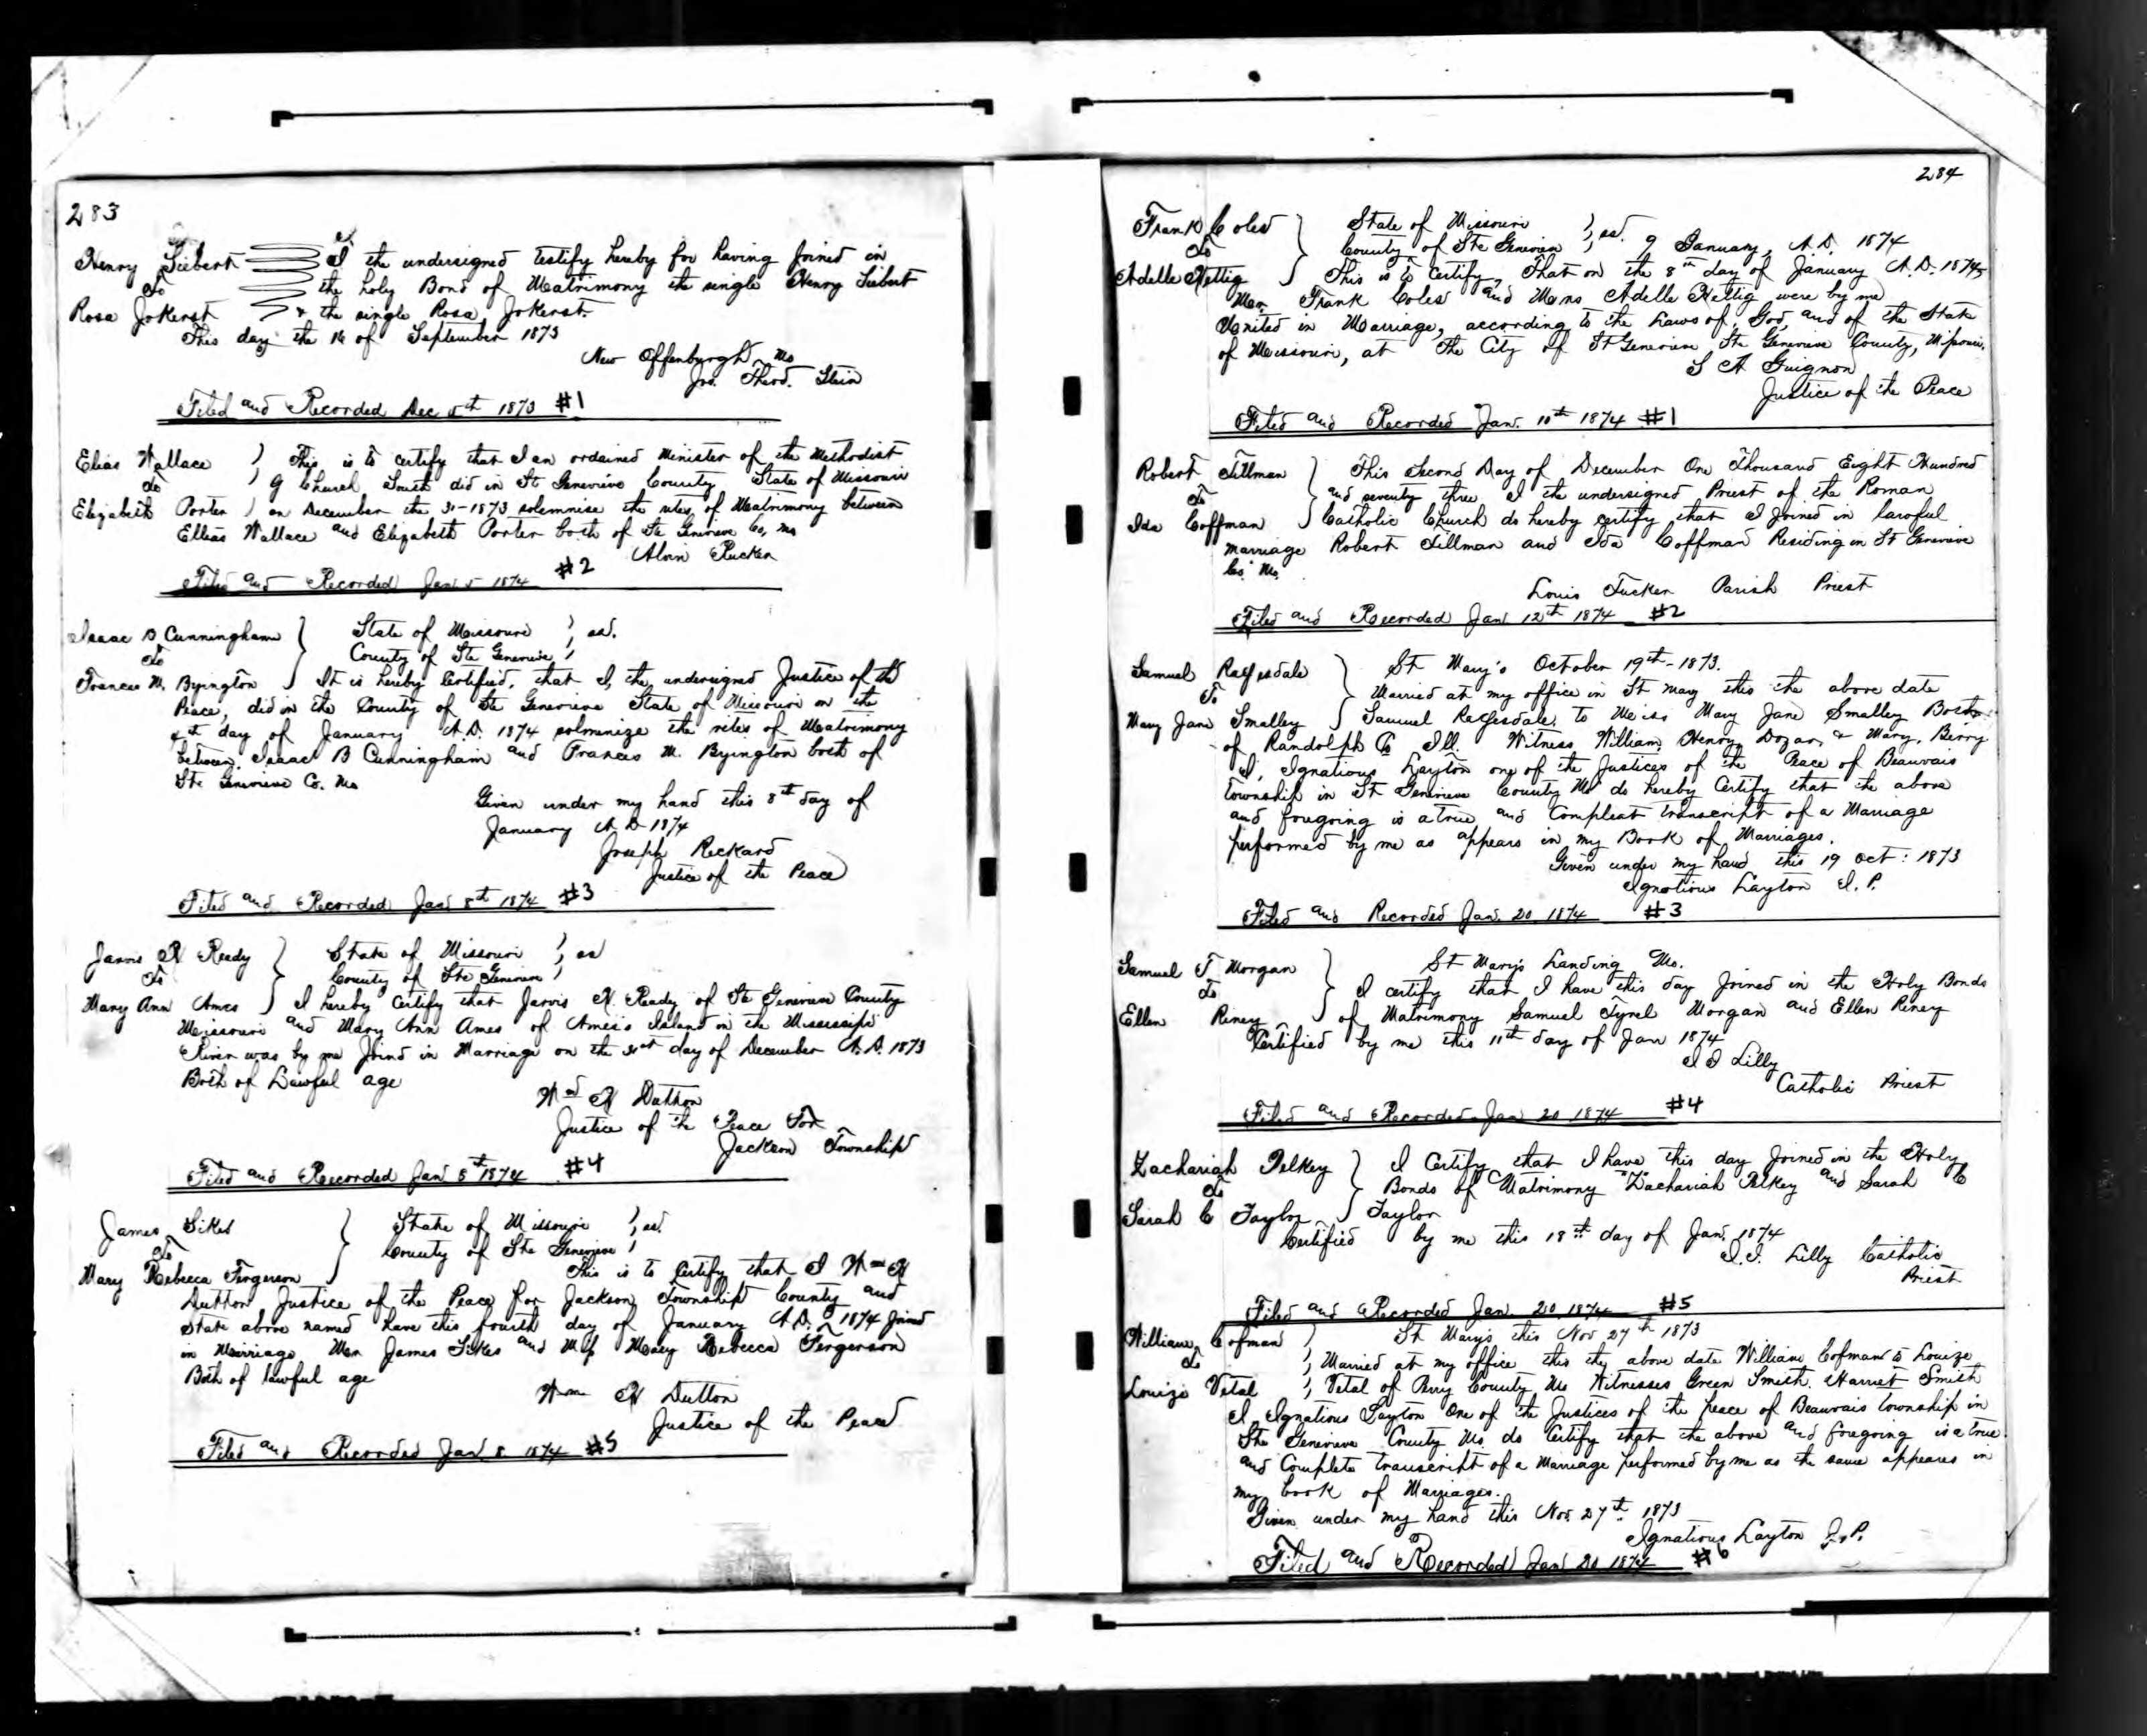 283
Henry Siebert I the undersigned testify hereby for having joined in
To the holy Bond of Matrimony the single Henry Siebert
Rosa Jokerst & the single Rosa Jokerst.
This day the 16 of September 1873
New Offenburgh Mo
Jno. Theod. Stein
Filed and Recorded Dec 5th 1873 #1
Elias Wallace This is to certify that I an ordained Minister of the Methodist
To Church South did in St Genevieve County State of Missouri
Elizabeth Porter on December the 31-1873 solemnise the rites of Matrimony between
Ellias Wallace and Elizabeth Porter both of Ste Genevieve Co, Mo
Alvin Rucker
Filed and Recorded Jan 5 1874 #2
Isaac B Cunningham State of Missouri ss.
To County of Ste Genevieve
Frances M. Byington It is hereby Certified, that I, the undersigned Justice of the
Peace, did in the County of Ste Genevieve State of Missouri on the
4th day of January A.D. 1874 solemnize the rites of Matrimony
between Isaac B Cunningham and Frances M. Byington both of
Ste Genevieve Co. Mo
Given under my hand this 8th day of
January A D 1874
Joseph Reckard
Justice of the Peace
Filed and Recorded Jan 8th 1874 #3
Jarvis N Ready State of Missouri ss
To County of Ste Genevieve
Mary Ann Ames I hereby Certify that Jarvis N. Ready of Ste Genevieve County
Missouri and Mary Ann Ames of Ames's Island in the Mississippi
River was by me Joind in Marriage on the 31st day of December A.D. 1873
Both of Lawful age
Wm H Dutton
Justice of the Peace For
Jackson Township
Filed and Recorded Jan 8th 1874 #4
James Sikes State of Missouri ss.
To County of Ste Genevieve
Mary Rebecca Fergerson This is to Certify that I Wm H
Dutton Justice of the Peace for Jackson Township County and
State above named have this fourth day of January A.D. 1874 joined
in Marriage Mr James Sikes and Mary Rebecca Fergerson
Both of lawful age
Wm H Dutton
Justice of the Peace
Filed and Recorded Jan 8 1874 #5
284
Frank Coles State of Missouri ss.
To County of Ste Genevieve 9 January, A.D. 1874
Adelle Hettig This is to Certify, That on the 8th day of January A.D. 1874
Mr. Frank Coles and Adelle Hettig were by me
United in Marriage, according to the Laws of God, and of the State
of Missouri, at The City of St Genevieve Ste Genevieve County, Missouri.
S A Guignon
Justice of the Peace
Filed and Recorded Jan. 10th 1874 #1
Robert Tillman This Second Day of December One Thousand Eight Hundred
To and seventy three I the undersigned Priest of the Roman
Ida Coffman Catholic Church do hereby certify that I joined in lawful
marriage Robert Tillman and Ida Coffman Residing in St Genevieve
Co. Mo.
Louis Tucker Parish Priest
Filed and Recorded Jan 12th 1874 #2
Samuel Ragsdale St Mary's October 19th-1873.
To Married at my office in St Mary this the above date
Mary Jane Smalley Samuel Ragsdale, to Miss Mary Jane Smalley Both
of Randolph Co Ill. Witness William Henry Dozar & Mary, Berry
I, Ignatious Layton one of the Justices of the Peace of Beauvais
Township in St Genevieve County Mo do hereby Certify that the above
and foregoing is a true and Compleat transcript of a Marriage
performed by me as appears in my Book of Marriages.
Given under my hand this 19 Oct: 1873
Ignatious Layton J. P.
Filed and Recorded Jan. 20 1874 #3
Samuel T Morgan St Mary's Landing Mo.
To I certify that I have this day Joined in the Holy Bonds
Ellen Riney of Matrimony Samuel Tyrel Morgan and Ellen Riney
Certified by me this 11th day of Jan 1874
I I Lilly
Catholic Priest
Filed and Recorded Jan 20 1874 #4
Zachariah Pelkey I Certify that I have this day Joined in the Holy
To Bonds of Matrimony Zachariah Pelkey and Sarah C
Sarah C Taylor Taylor
Certified by me this 18th day of Jan. 1874
I.I. Lilly Catholic
Priest
Filed and Recorded Jan. 20 1874 #5
William Cofman St Mary's this Nov 27th 1873
To Married at my office this the above date William Cofman to Louize
Louize Vital Vital of Perry County Mo Witnesses Green Smith. Harriet Smith
I Ignatious Layton One of the Justices of the peace of Beauvais township in
Ste Genevieve County Mo do Certify that the above and foregoing is a true
and Complete transcript of a Marriage performed by me as the same appears in
my book of Marriages.
Given under my hand this Nov 27th 1873
Ignatious Layton J.P.
Filed and Recorded Jan 20 1874 #6